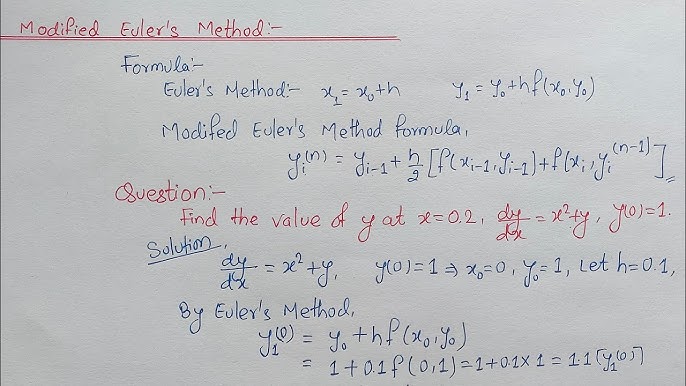 Modified Euler's Method:-
Formula:-
Euler's Method:- x₁ = x₀+h y₁ = y₀+hf(x₀,y₀)
Modifed Euler's Method formula,
yᵢ⁽ⁿ⁾ = yᵢ₋₁ + h/2 [f(xᵢ₋₁,yᵢ₋₁)+f(xᵢ,yᵢ⁽ⁿ⁻¹⁾]
Question:-
Find the value of y at x=0.2, dy/dx = x²+y, y(0)=1.
Solution,
dy/dx = x²+y, y(0)=1 ⇒ x₀=0, y₀=1, Let h=0.1,
By Euler's Method,
y₁⁽⁰⁾ = y₀+hf(x₀,y₀)
= 1+0.1f(0,1)=1+0.1×1 = 1.1 [y₁⁽⁰⁾]